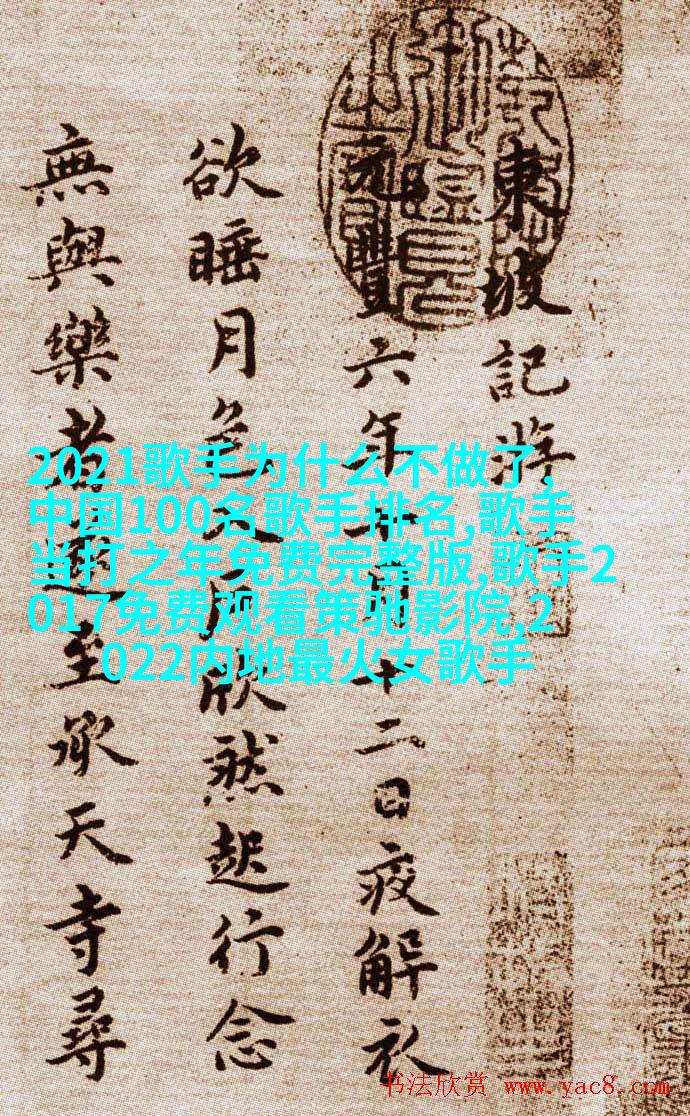 東坡記游
元豐六年十月十二日夜解衣
欲睡月色入户欣然起行念
無與樂者遂至承天寺尋
2021歌手为什么不做了,
中国100名歌手排名,歌手
当打之年免费完整版,歌手2
017免费观看策驰影院,2
022内地最火女歌手
书法欣赏 www.yac8.com